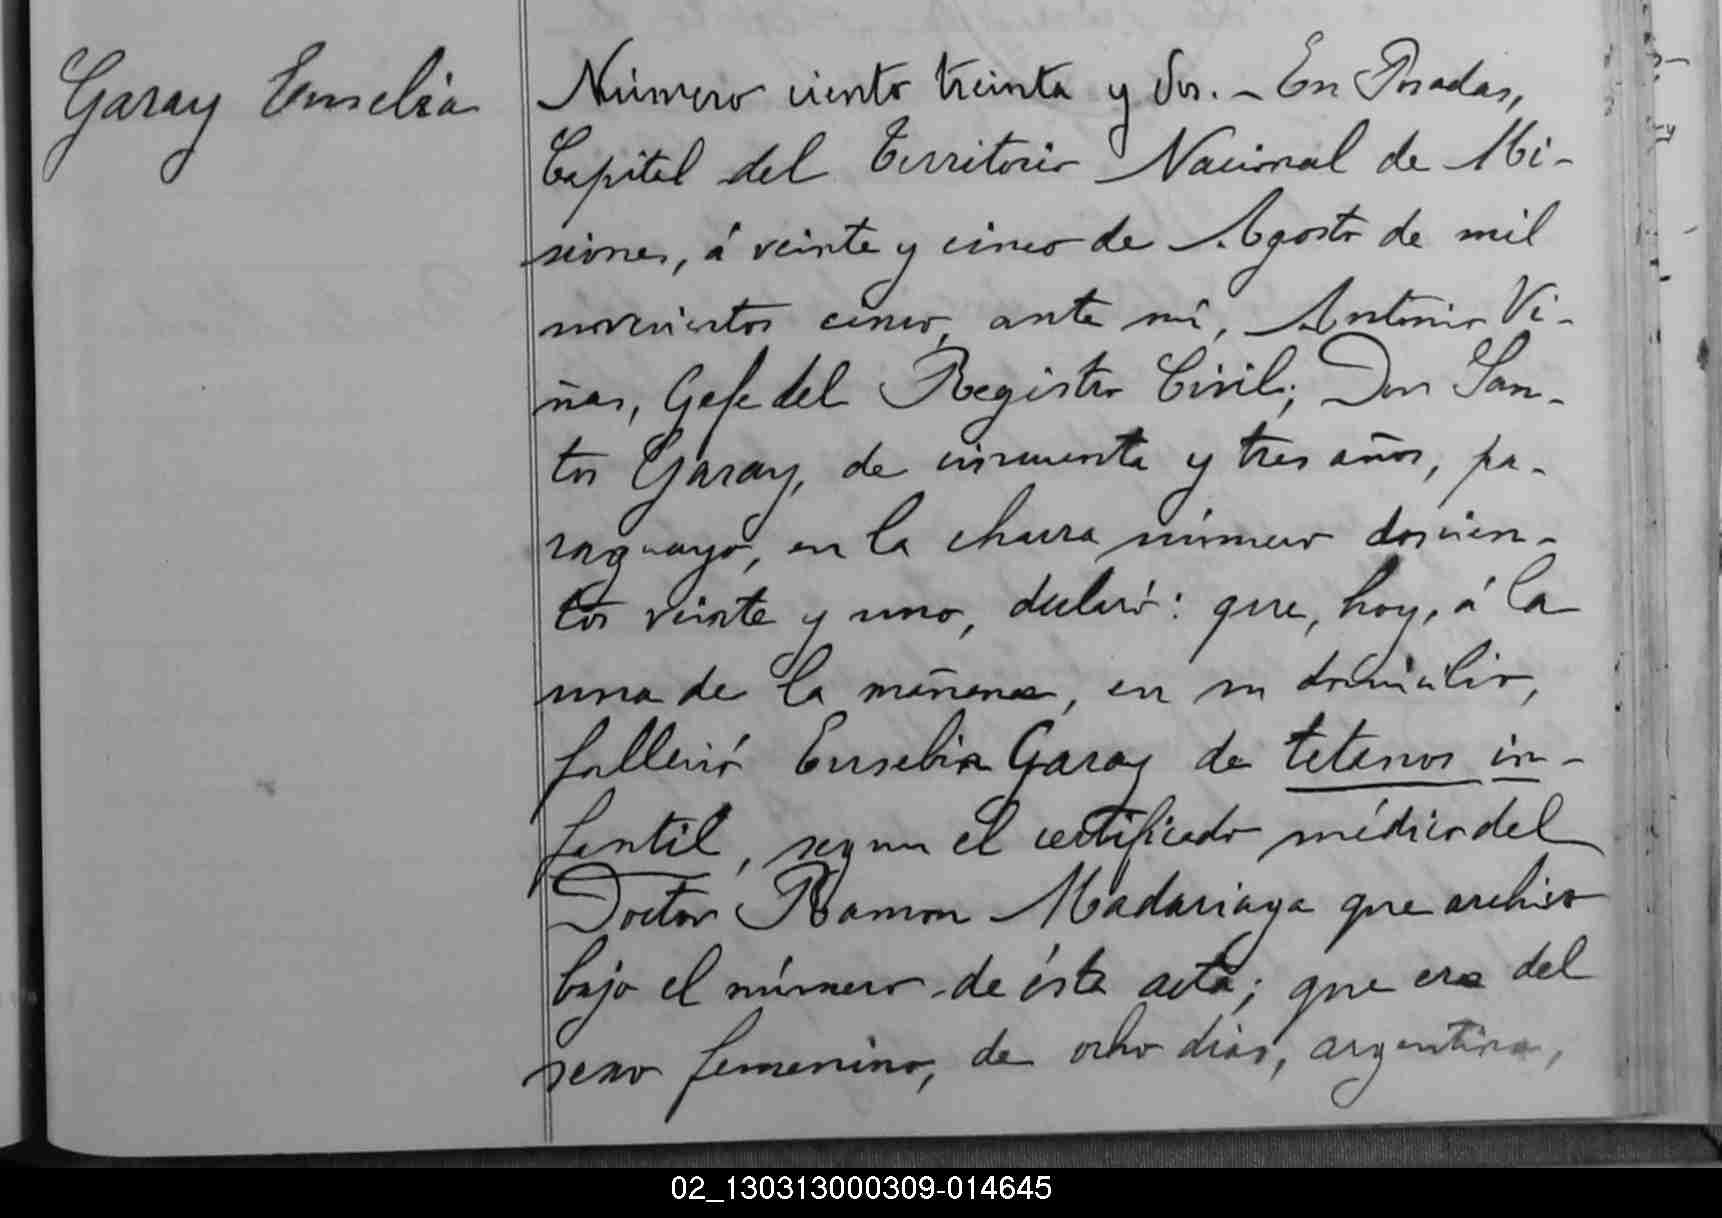 Garay Eusebia
Número ciento treinta y dos. – En Posadas,
Capital del Territorio Nacional de Mi-
siones, á veinte y cinco de Agosto de mil
novecientos cinco, ante mí, Antonio Vi-
ñas, Gefe del Registro Civil; Don San-
tos Garay, de cincuenta y tres años, pa-
raguayo, en la chacra número doscien-
tos veinte y uno, declaró: que, hoy, á la
una de la mañana, en su domicilio,
falleció Eusebia Garay de tetanos in-
fantil, segun el certificado médico del
Doctor Ramon Madariaga que archivo
bajo el número de ésta acta; que era del
sexo femenino, de ocho dias, argentina,
02_130313000309-014645